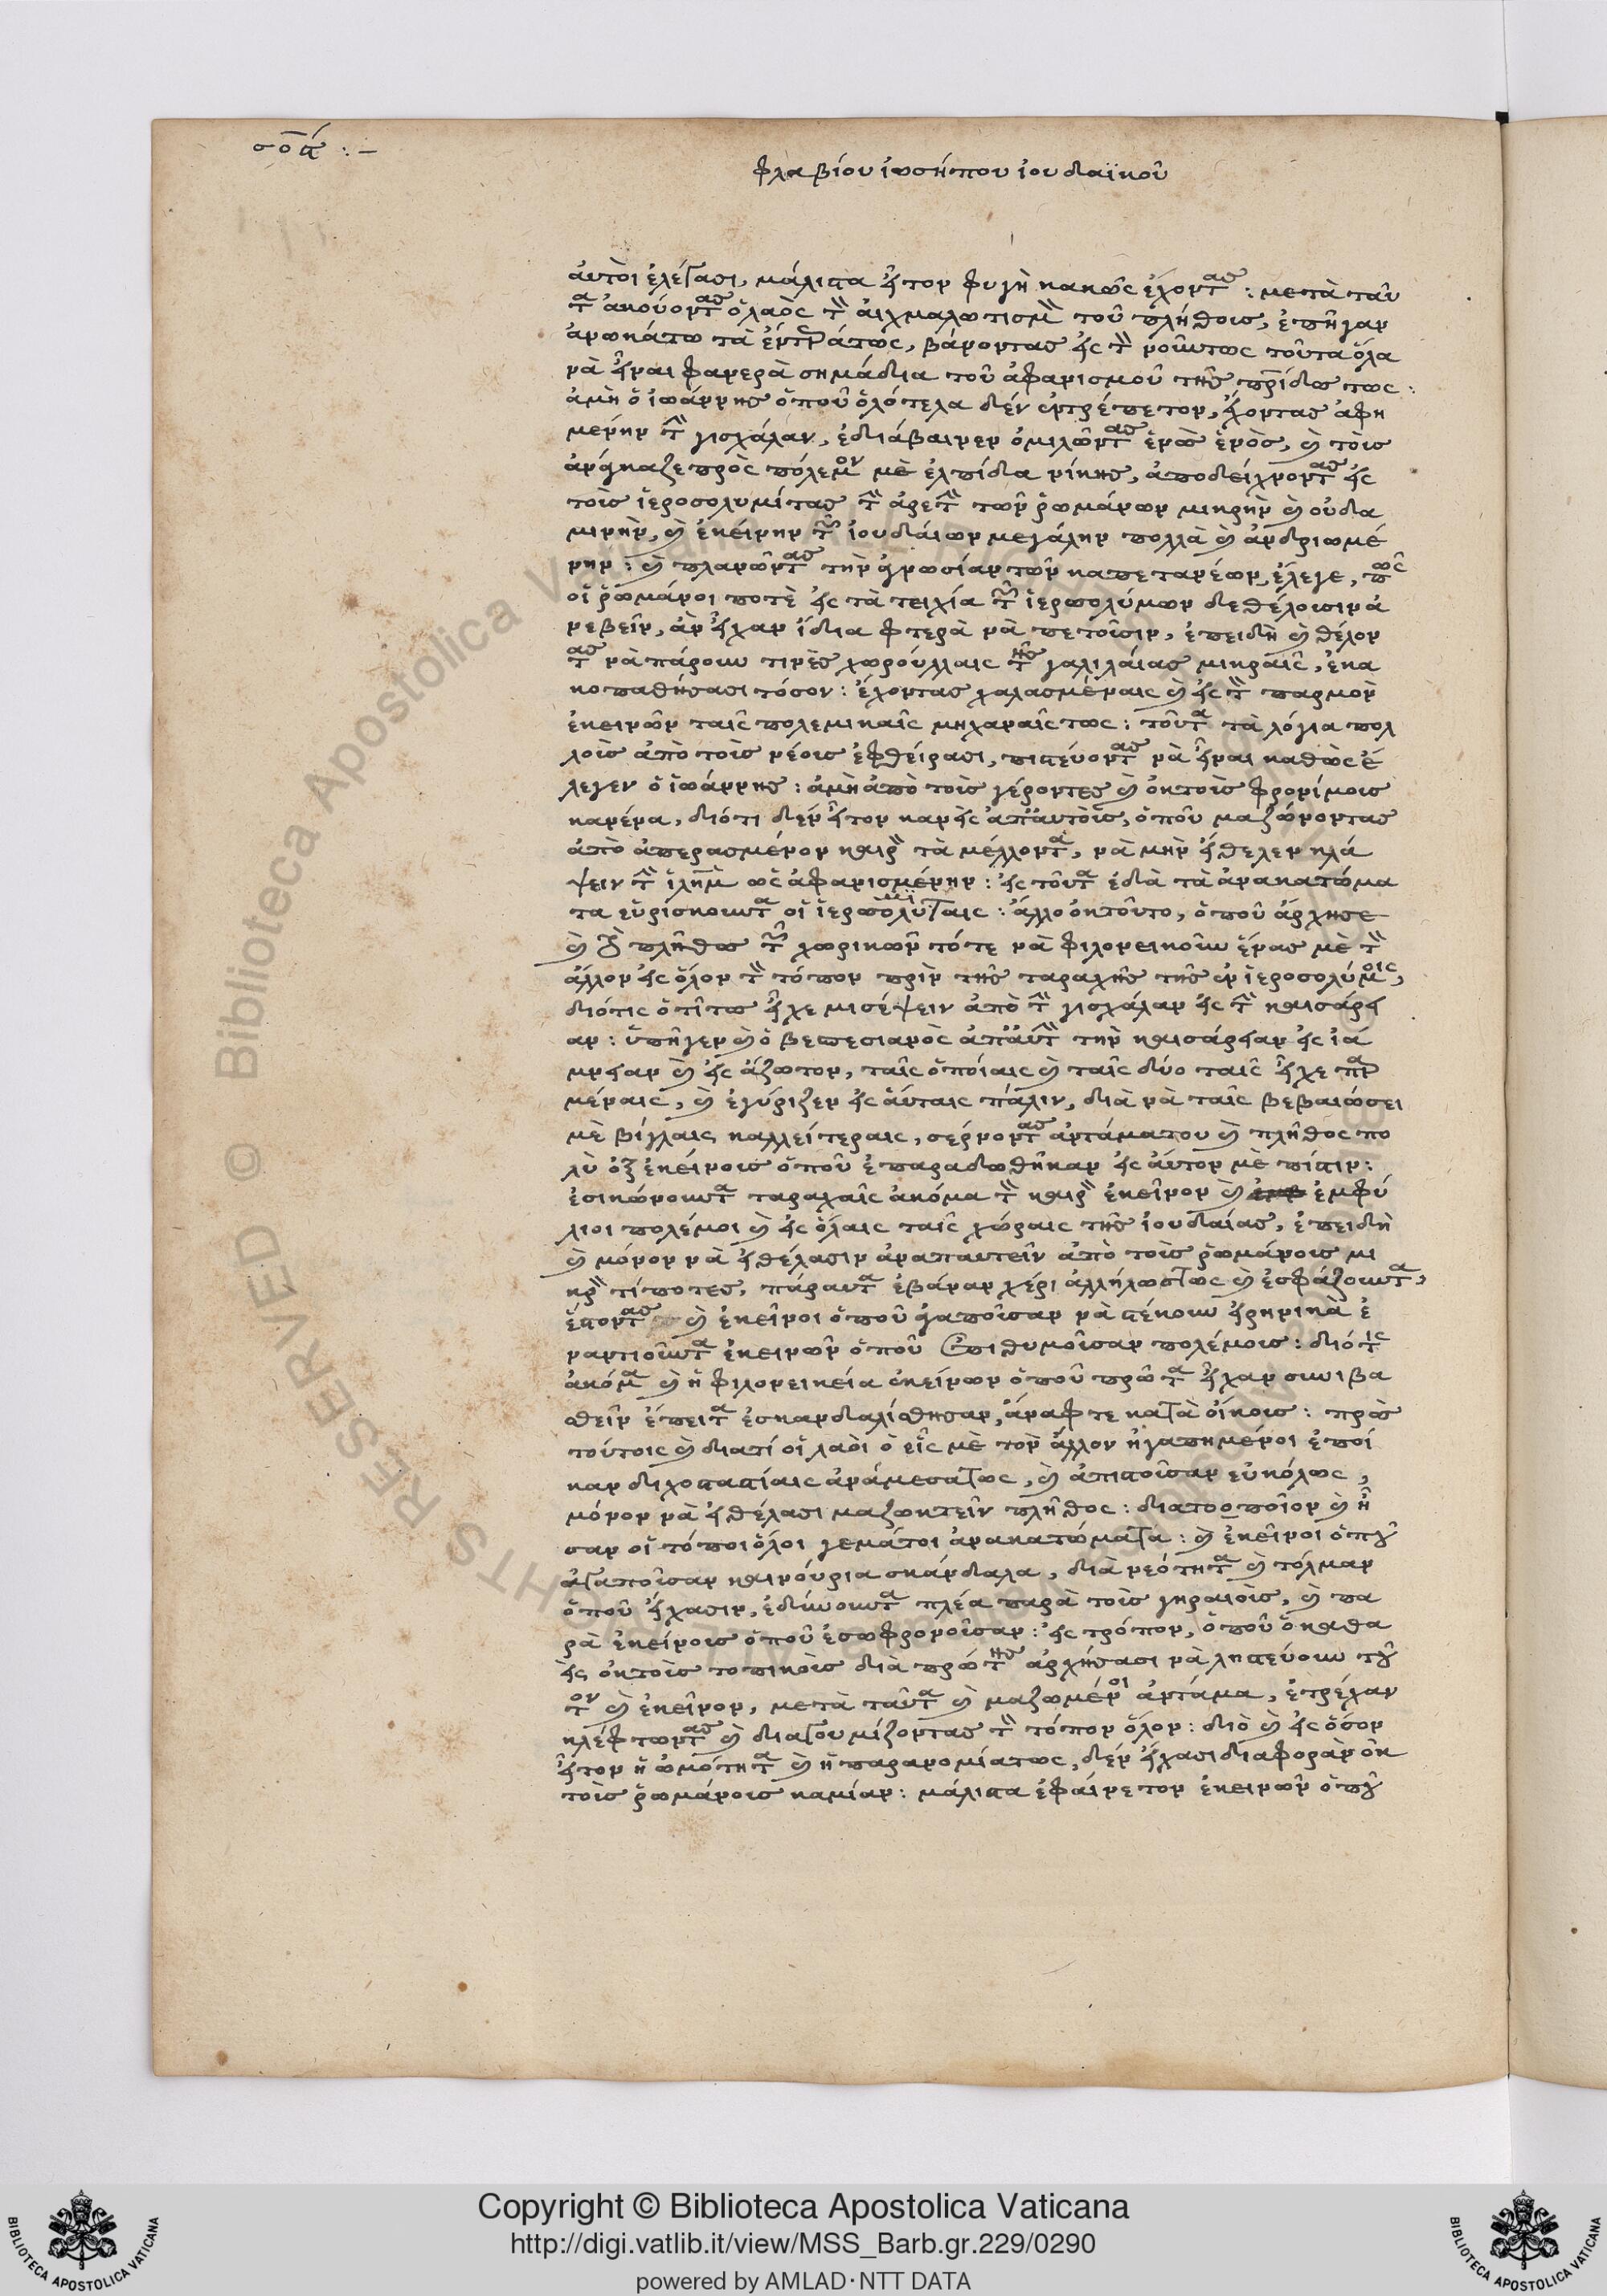 σοα :-
φλαβίου ἰωσήπου ἰουδαϊκοῦ
ἀυτὸι ἐλέγασι, μάλιστα ἦτον φυγὴ κακῶς ἔχοντας : μετὰ ταῦ
τα ἀκούοντας ὁ λαὸς τὸν ἀιχμαλωτισμὸν τοῦ πλήθοις, ἐπῆγαν
ἀνωκάτω τὰ ἐντεράτως, βάνοντας εἰς τὸν νοῦντως τοῦτα ὅλα
νὰ ἦναι φανερὰ σημάδια τοῦ ἀφανισμοῦ τῆς πρίδος τως :
ἀμὴ ὁ ἰωάννης ὁποῦ ὁλότελα δέν ἐντρέπετον, ἔχοντας ἀφη
μένην τὴν γισχάλαν, ἐδιάβαινεν ὁμιλῶντας ἑνὸς ἑνὸς, καὶ τοὶς
ἀνάγκαζε πρὸς πόλεμον μὲ ἐλπίδα νίκης, ἀποδείχνοντας εἰς
τοὶς ἱεροσολυμίτας τὴν ἀρετὴν τῶν ῥωμάνων μικρὴν καὶ οὐδα
μινὴν, καὶ ἐκείνην τῶν ἰουδάιων μεγάλην πολλὰ καὶ ἀνδριωμέ
νην : καὶ πλανῶντας τὴν γνωσίαν τῶν καπεταρέων, ἔλεγε, πῶς
οἱ ῥωμάνοι ποτὲ εἰς τὰ τειχία τῶν ἱερωσολύμων δεθέλοισι νά
νεβεῖν, ἀν εἶχαν ἴδια φτερὰ νὰ πετοῖσιν, ἐπειδὴ καὶ θέλον
τας νὰ πάρουν τινὲς χωρούλλαις τῆς γαλιλάιας μικραῖς, ἐκα
κοπαθήσασι τόσον : ἔχοντας χαλασμέναις καὶ εἰς τὸν παρμὸν
ἐκεινῶν ταῖς πολεμικαῖς μηχαναῖς τως : τοῦτα τὰ λόγια πολ
λοὶς ἀπὸ τοὶς νέοις ἐφθείρασι, πιστέυοντας νὰ ἦναι καθὼς ἔ
λεγεν ὁ ἰωάννης : ἀμὴ ἀπὸ τοὶς γέροντες καὶ ὀκτοὶς φρονίμοις
κανένα, διότι δὲν ἦτον κανεὶς ἀπἀυτὸις, ὁποῦ μαζώνοντας
ἀπὸ ἀπερασμένον καιρὸν τὰ μέλλοντα, νὰ μὴν ἤθελεν κλά
ψειν τὴν ἱλὴμ ὡς ἀφανισμένην : εἰς τοῦτα ἐδὰ τὰ ἀνακατώμα
τα εὑρίσκουντα οἱ ἱερωσολυμίταις : ἄλλο ὀκτοῦτο, ὁποῦ ἄρχησε
καὶ τὸ πλῆθος τῶν χωρικῶν τότε νὰ φιλονεικοῦν ἕνας μὲ τὸν
ἄλλον εἰς ὅλον τὸν τόπον πρὶν τῆς ταραχῆς τῆς ἐν ἱεροσολύμοις,
διότις ὁ τίτος εἶχε μισέψειν ἀπὸ τὴν γισχάλαν εἰς τὴν καισάρει
αν : ὑπῆγεν καὶ ὁ βεσπεσιανὸς ἀπἀυτὴν τὴν καισάρειαν εἰς ἰά
μνειαν καὶ εἰς ἄζωτον, ταῖς ὁποίαις καὶ ταῖς δύο ταῖς εἶχε παρ
μέναις, καὶ ἐγύριζεν εἰς ἀύταις πάλιν, διὰ νὰ ταῖς βεβαιώσει
μὲ βίγλαις καλλείτεραις, σέρνοντας ἀντάματου καὶ πλῆθος πο
λὺ ὀξ ἐκείνοις ὁποῦ ἐπαραδωθῆκαν εἰς ἀύτον μὲ πίστιν :
ἐσικώνουντα ταραχαῖς ἀκόμα τὸν καιρὸν ἐκεῖνον καὶ ἐμφύ
λιοι πολέμοι καὶ εἰς ὅλαις ταῖς χώραις τῆς ἰουδαίας, ἐπειδὴ
καὶ μόνον νὰ ἠθέλασιν ἀναπαυτεῖν ἀπὸ τοὶς ῥωμάνοις μι
κρὸν τίποτες, πάραυτα ἐβάναν χέρι ἀλλήλωστως καὶ ἐσφάζουντα,
ἔστοντας καὶ ἐκεῖνοι ὁποῦ ἀγαποῖσαν νὰ στέκουν εἰρηνικὰ ἐ
ναντιοῦντα ἐκεινῶν ὁποῦ ἐπιθυμοῖσαν πολέμοις : διότις
ἀκόμα καὶ ἡ φιλονεικεία ἐκείνων ὁποῦ πρῶτα εἶχαν συνιβα
σθεῖν ἔπειτα ἐσκανδαλίσθησαν, ἄναφτε κατὰ οἴκοις : πρὸς
τούτοις καὶ διατί οἱ λαὸι ὁ εἷς μὲ τὸν ἄλλον ἠγαπημένοι ἐποί
καν διχοστατίαις ἀνάμεσατως, καὶ ἀπιστοῖσαν εὐκόλως,
μόνον νὰ ἠθέλασι μαζωκτεῖν πλῆθος : διατοοποῖον καὶ ἦ
σαν οἱ τόποι ὅλοι γεμάτοι ἀνακατώματα : καὶ ἐκεῖνοι ὁποῦ
ἀγαποῖσαν καινούρια σκάνδαλα, διὰ νεότητα καὶ τόλμαν
ὁποῦ εἴχασιν, ἐδίνουντα πλέα παρὰ τοὶς γηραιὸις, καὶ πα
ρὰ ἐκείνοις ὁποῦ ἐσωφρονοῖσαν : εἰς τρόπον, ὁποῦ ὁ καθα
εὶς ὀκτοὶς τοπικὸις διὰ πρώτης ἀρχήσασι νὰ ληστεύουν τοῦ
τον καὶ ἐκεῖνον, μετὰ ταῦτα καὶ μαζωμένοι ἀντάμα, ἐτρέχαν
κλέφτωντας καὶ διαγουμίζοντας τὸν τόπον ὅλον : διὸ καὶ εἰς ὅσον
ἦτον ἡ ὠμότητα καὶ ἡ παρανομίατως, δὲν εἴχασι διαφορὰν ὀκ
τοὶς ῥωμάνοις καμίαν : μάλιστα ἐφαίνετον ἐκεινῶν ὁποῦ
Copyright © Biblioteca Apostolica Vaticana
http://digi.vatlib.it/view/MSS_Barb.gr.229/0290
powered by AMLAD·NTT DATA